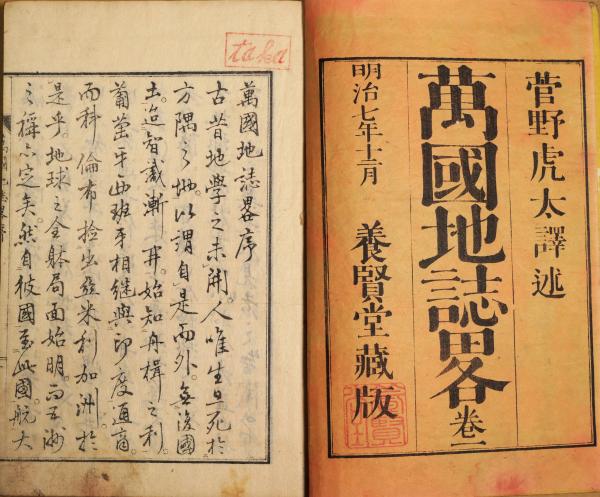 菅野虎太譯述
萬國地誌畧
卷一
明治七年十二月
養賢堂藏版
taka
萬國地誌畧序
古昔地學之未開。人唯生且死於
方隅之地。以謂自是而外。無復國
土。迨智識漸開。始知舟楫之利。
葡萄牙西班牙相継與印度通商。
而科倫布撿出亞米利加洲。於
是乎。地球之全躰局面始明。而五洲
之稱亦定矣。然自彼國至此國。航大